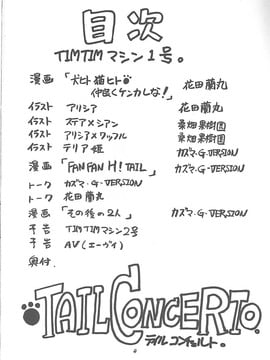 目次
TIMTIMマシン1号。
漫画「犬ヒト猫ヒト 仲良くケンカしな!」 花田蘭丸
イラスト アリシア 花田蘭丸
イラスト ステア×シアン 桑畑果樹園
イラスト アリシア×ワッフル 桑畑果樹園
イラスト テリア姫 カズマ・G-VERSION
漫画「FANFAN H! TAIL」 カズマ・G-VERSION
トーク カズマ・G-VERSION
トーク 花田蘭丸
漫画「その後の2人」 カズマ・G-VERSION
予告 TIMTIMマシン2号
予告 AV(エーヴィ)
奥付.
TAIL CONCERTO。
テイルコンチェルト。